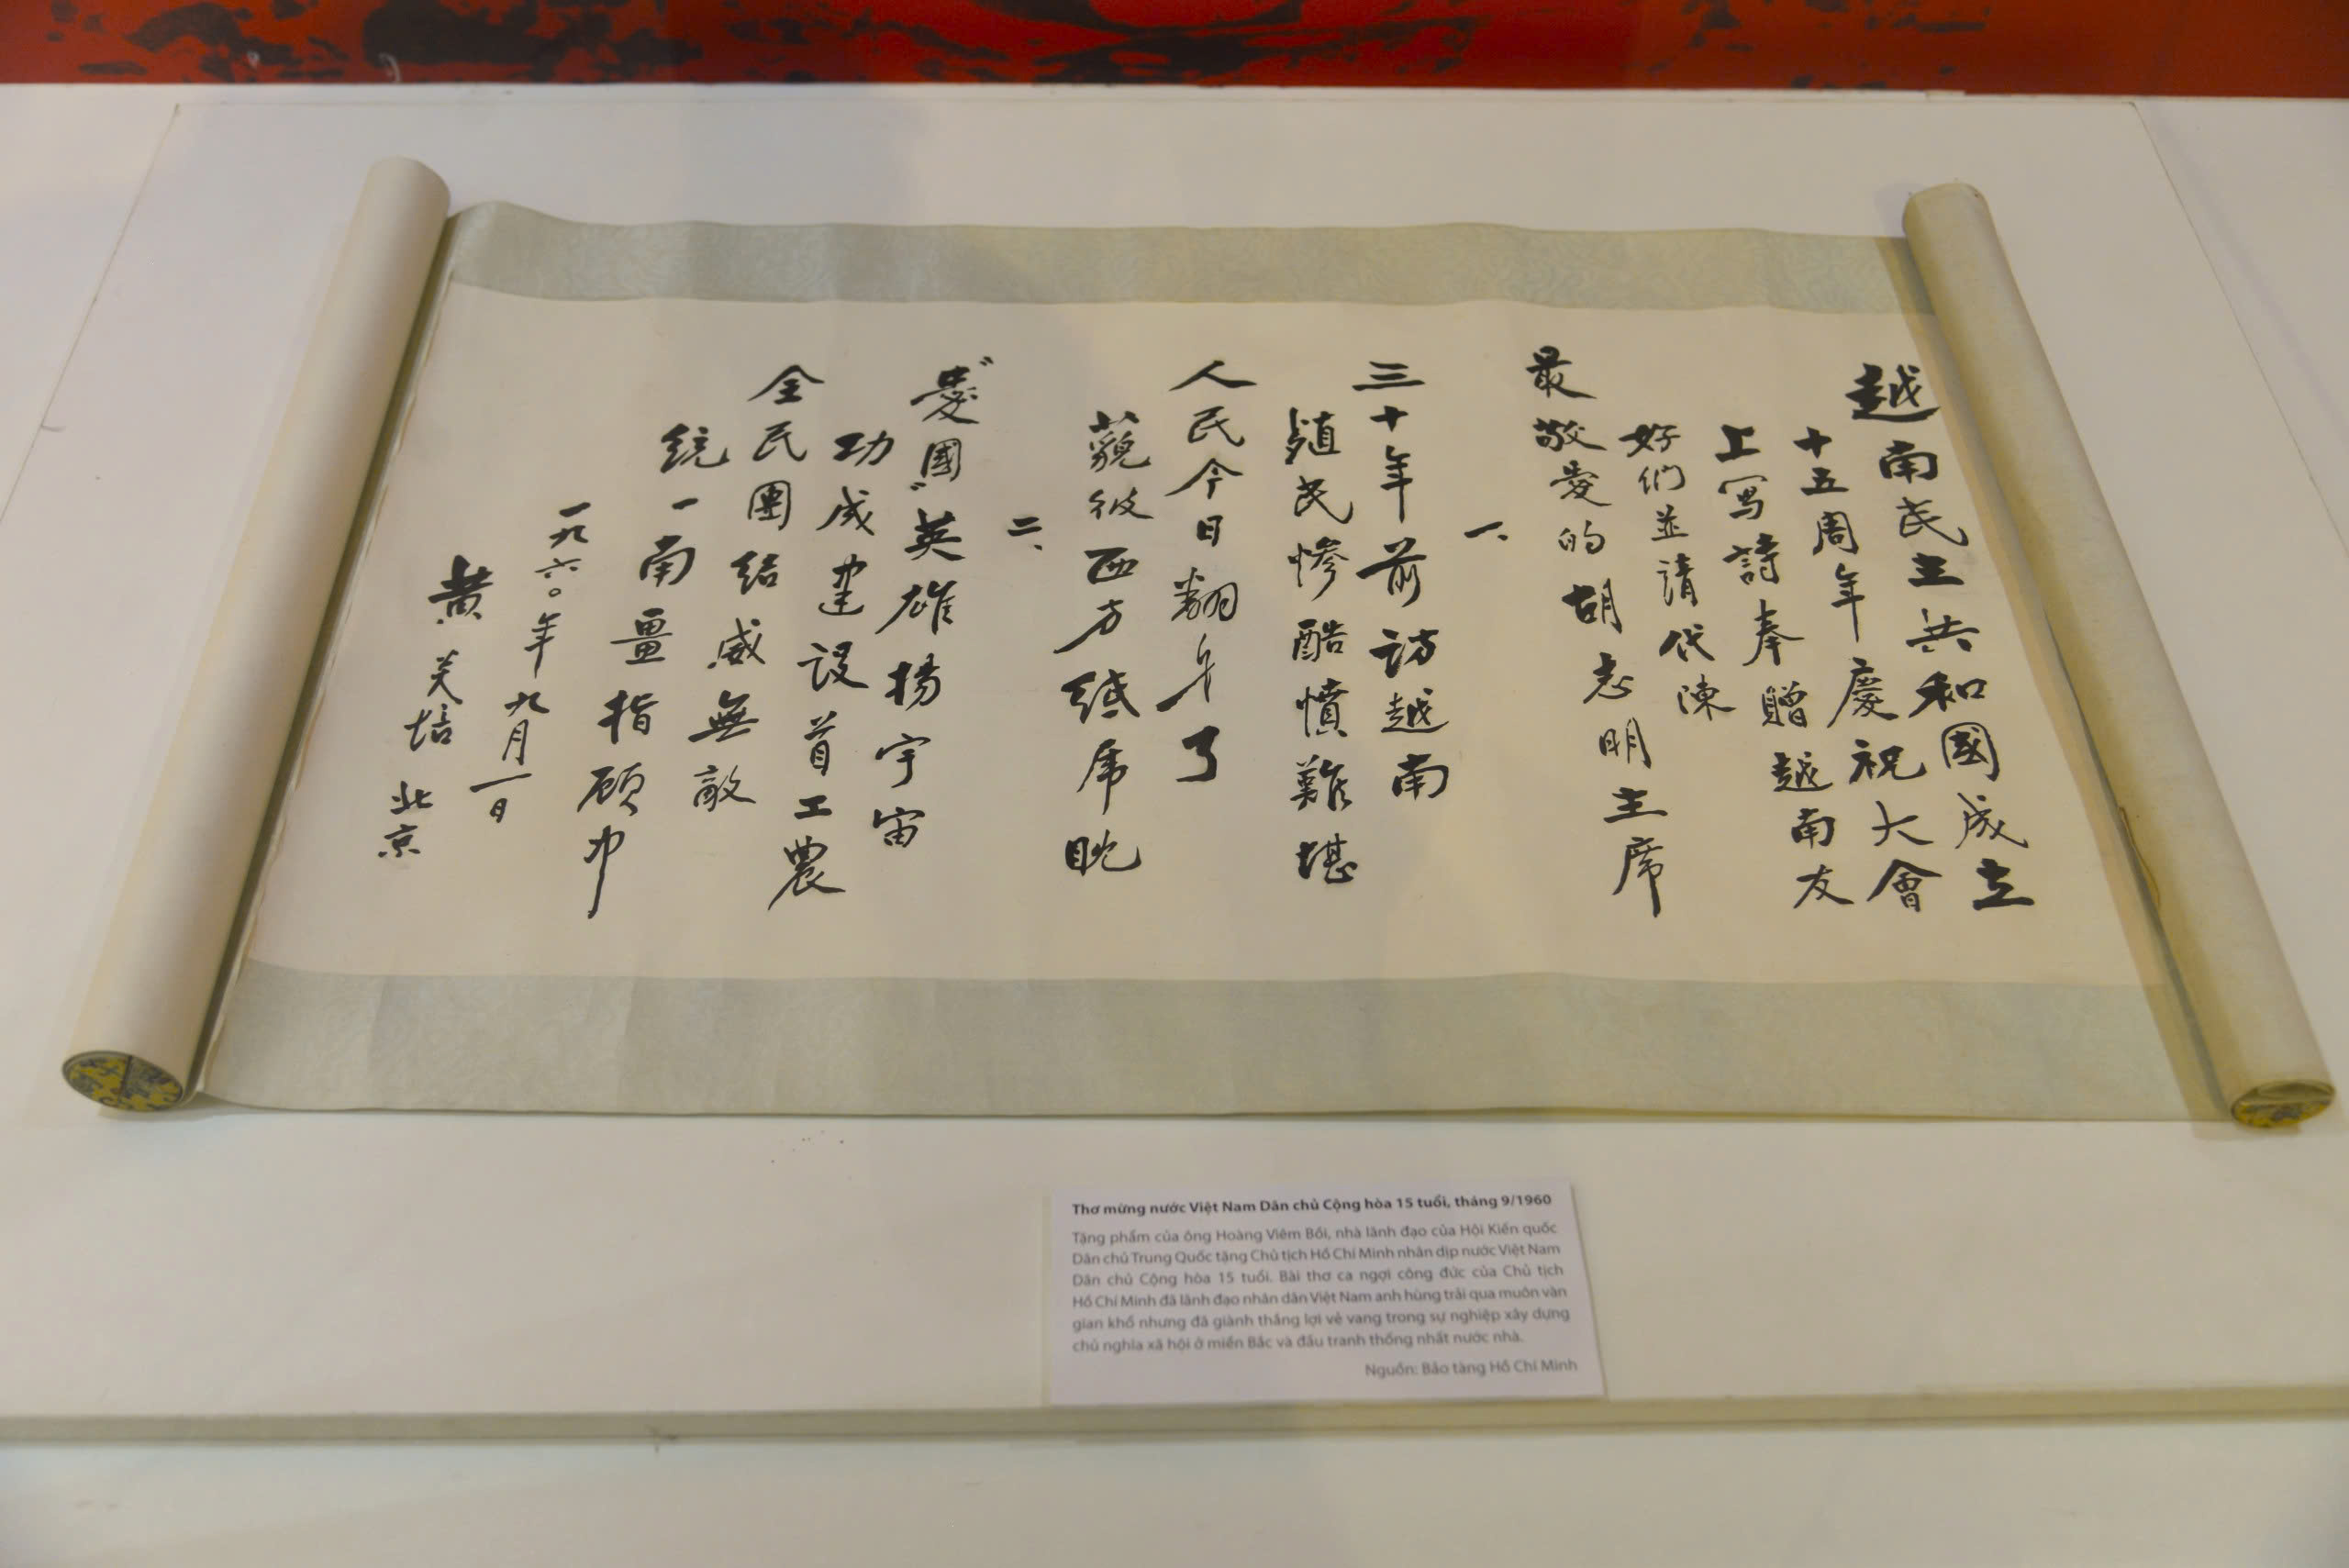 越南民主共和國成立
十五周年慶祝大會
上写詩奉贈越南友
好们並請代陳
最敬愛的胡志明主席
一、
三十年前訪越南
殖民慘酷憤難堪
人民今日翻身了
藐彼西方纸虎眈
二、
"愛國"英雄揚宇宙
功成建设首工農
全民團结威無敵
统一南畺指顾中
一九六〇年九月一日
黄炎培 北京
Thơ mừng nước Việt Nam Dân chủ Cộng hòa 15 tuổi, tháng 9/1960
Tặng phẩm của ông Hoàng Viêm Bồi, nhà lãnh đạo của Hội Kiến quốc
Dân chủ Trung Quốc tặng Chủ tịch Hồ Chí Minh nhân dịp nước Việt Nam
Dân chủ Cộng hòa 15 tuổi. Bài thơ ca ngợi công đức của Chủ tịch
Hồ Chí Minh đã lãnh đạo nhân dân Việt Nam anh hùng trải qua muôn vàn
gian khổ nhưng đã giành thắng lợi vẻ vang trong sự nghiệp xây dựng
chủ nghĩa xã hội ở miền Bắc và đấu tranh thống nhất nước nhà.
Nguồn: Bảo tàng Hồ Chí Minh